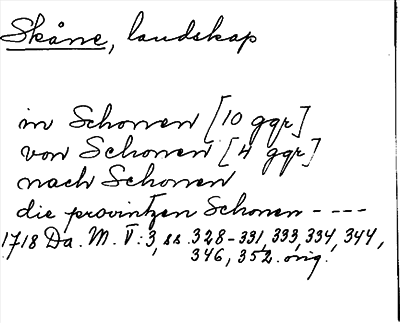 Skåne, landskap
in Schonen [10 ggr]
von Schonen [4 ggr]
nach Schonen
die provintzen Schonen ----
1718 Da. M. V:3, ss. 328-331, 333, 334, 344,
346, 352. orig.